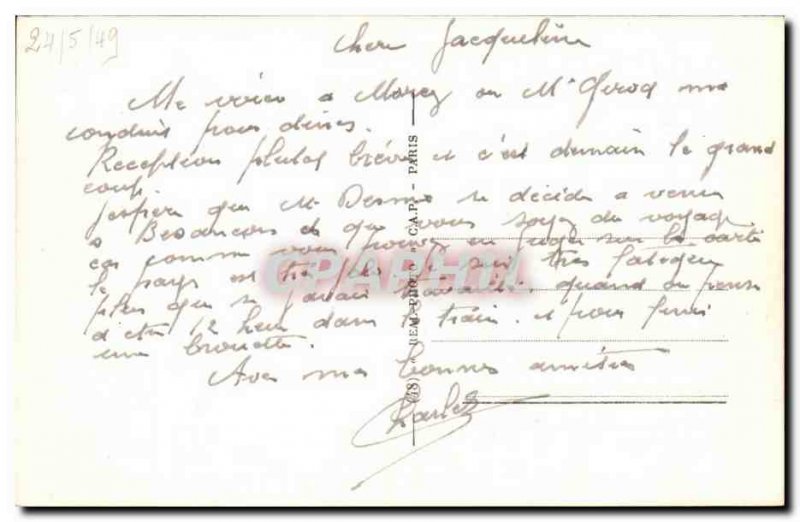 24/5/49
Chere Jacqueline
Me voici a Morez ou Mr Girod me
conduis pour diner.
Reception plutot brève et c'est demain le grand
coup.
Jespere que Mr se décide a venir
a Besançon et que vous soyez du voyage
car comme vous pouvez en juger sur la carte
le pays est très je suis très fatigué
plus que si javais travaillé. quand on pense
d etre 12 heures dans le train. et pour finir
une brouette.
Avec mes bonnes amitiés
Charles
(48) - REAL-PHOTO - C.A.P. - PARIS
CPAPHIL